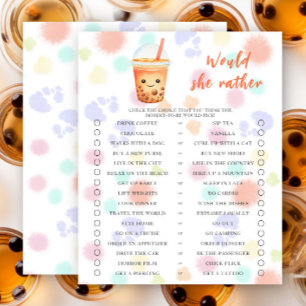 Would
she rather
CHECK THE EMOJI THAT YOU THINK THE
MOMMY-TO-BE WOULD PICK
DRINK COFFEE or SIP TEA
CHOCOLATE or VANILLA
WALKS WITH A DOG or CURL UP WITH A CAT
BUY A NEW PURSE or BUY NEW SHOES
LIVE IN THE CITY or LIVE IN THE COUNTRY
RELAX ON THE BEACH or HIKE UP A MOUNTAIN
GET UP EARLY or SLEEP IN LATE
LIFT WEIGHTS or DO CARDIO
COOK DINNER or WASH THE DISHES
TRAVEL THE WORLD or EXPLORE LOCALLY
STAY HOME or GO OUT
GO ON A CRUISE or GO CAMPING
ORDER AN APPETIZER or ORDER DESSERT
DRIVE THE CAR or BE THE PASSENGER
HORROR FILM or CHICK FLICK
GET A PIERCING or GET A TATTOO